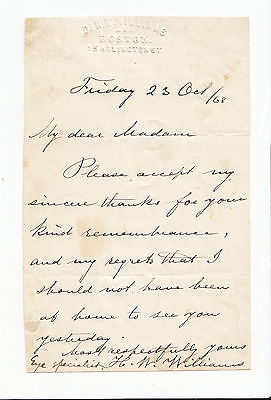 Dr. H. W. WILLIAMS
BOSTON.
15 ARLINGTON ST.
Friday 23 Oct/68
My dear Madam
Please accept my
sincere thanks for your
kind remembrance,
and my regrets that I
should not have been
at home to see you
yesterday.
Most respectfully yours
Eye specialist, H. W. Williams